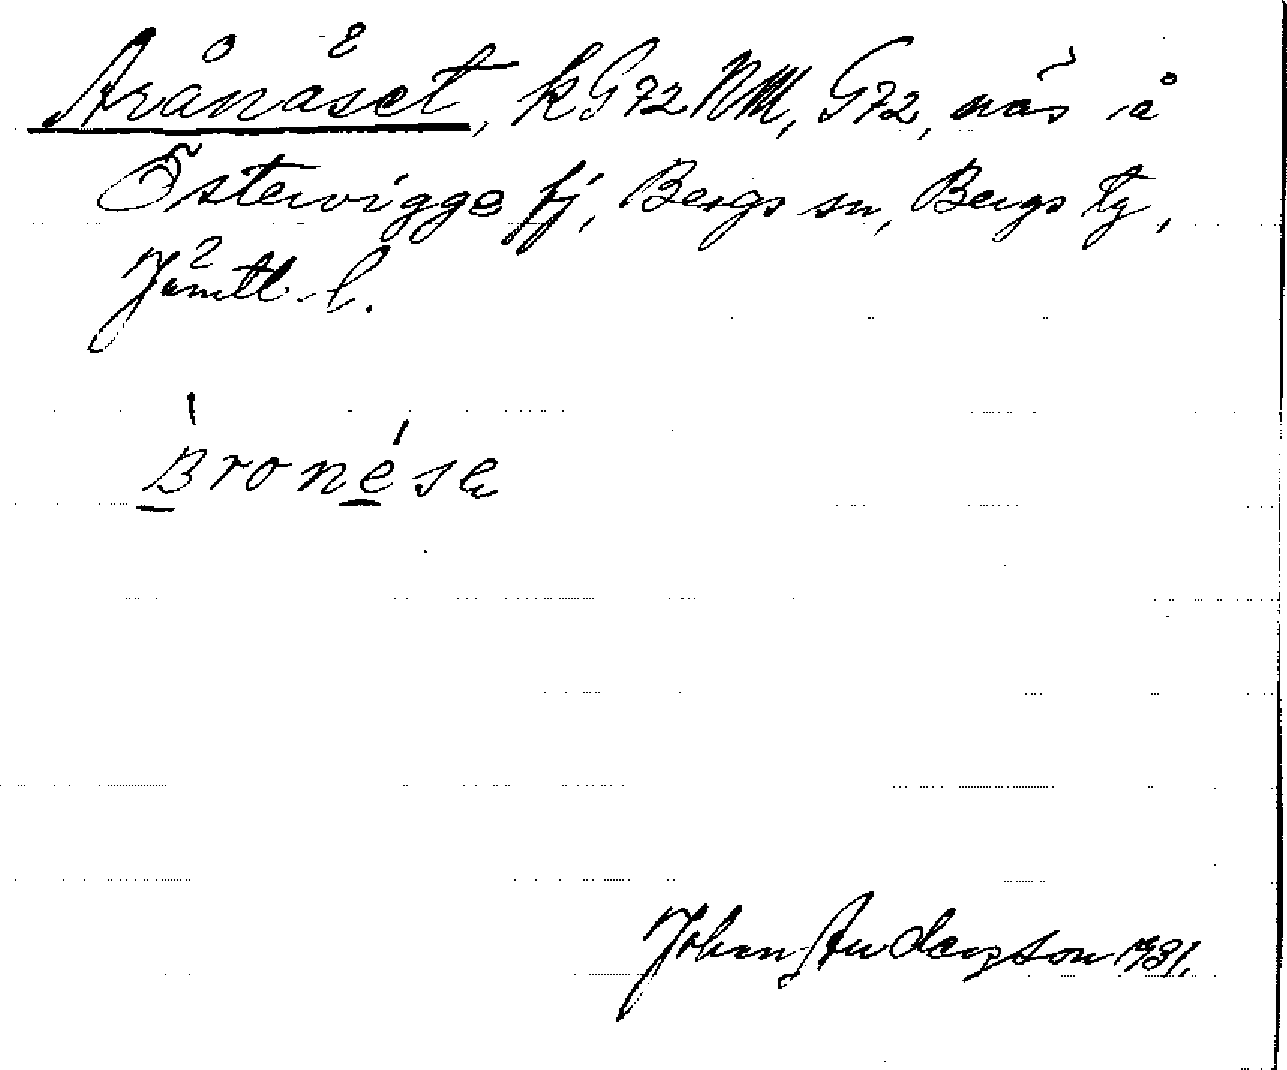 Arånäset, k G72 NM, G72, näs å
Östervigge fj, Bergs sn, Bergs tg,
Jämtl. l.
Johan Anderzson 1931.